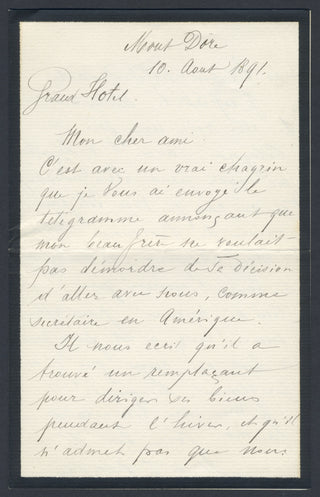 Mont Dore
10. Aout 1891.
Grand Hotel.
Mon cher ami
C'est avec un vrai chagrin
que je vous ai envoyé le
télégramme annonçant que
mon beau frère ne voulait
pas démordre de sa décision
d'aller avec nous, comme
secrétaire en Amérique.
Il nous ecrit qu'il a
trouvé un remplaçant
pour diriger ses biens
pendant l'hiver, et qu'il
n'admet pas que nous